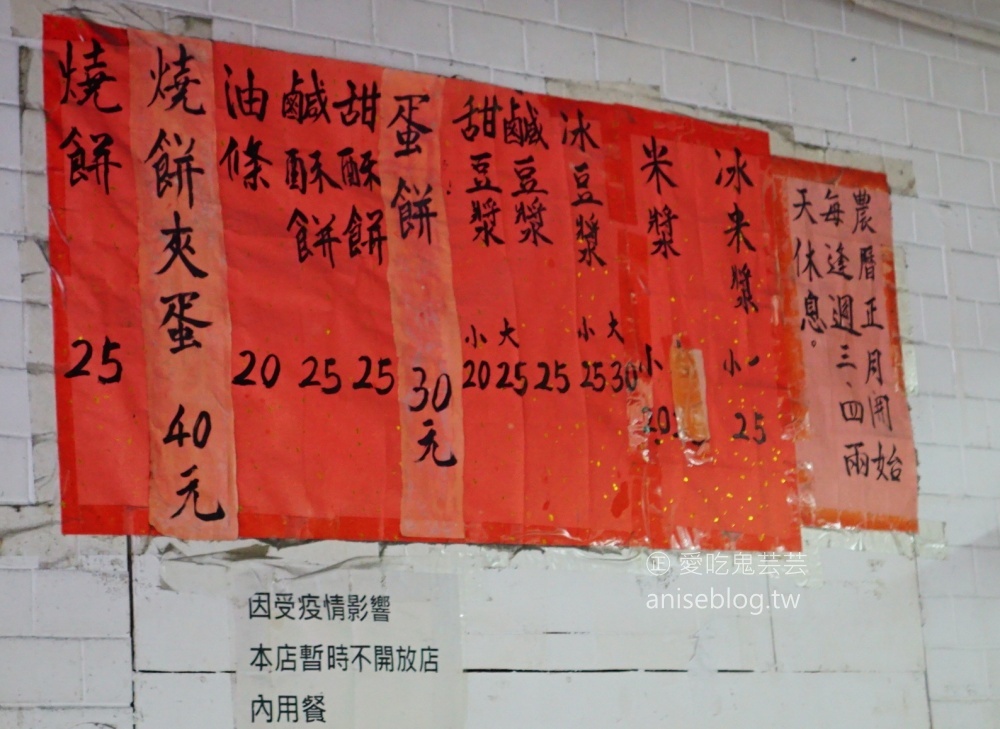 燒餅 25
燒餅夾蛋 40元
油條 20
鹹酥餅 25
甜酥餅 25
蛋餅 30元
甜豆漿 小20 大25
鹹豆漿 25
冰豆漿 小25 大30
米漿 小20
冰米漿 小 25
農曆正月開始
每逢週三、四兩
天休息。
因受疫情影響
本店暫時不開放店
內用餐
愛吃鬼芸芸
aniseblog.tw